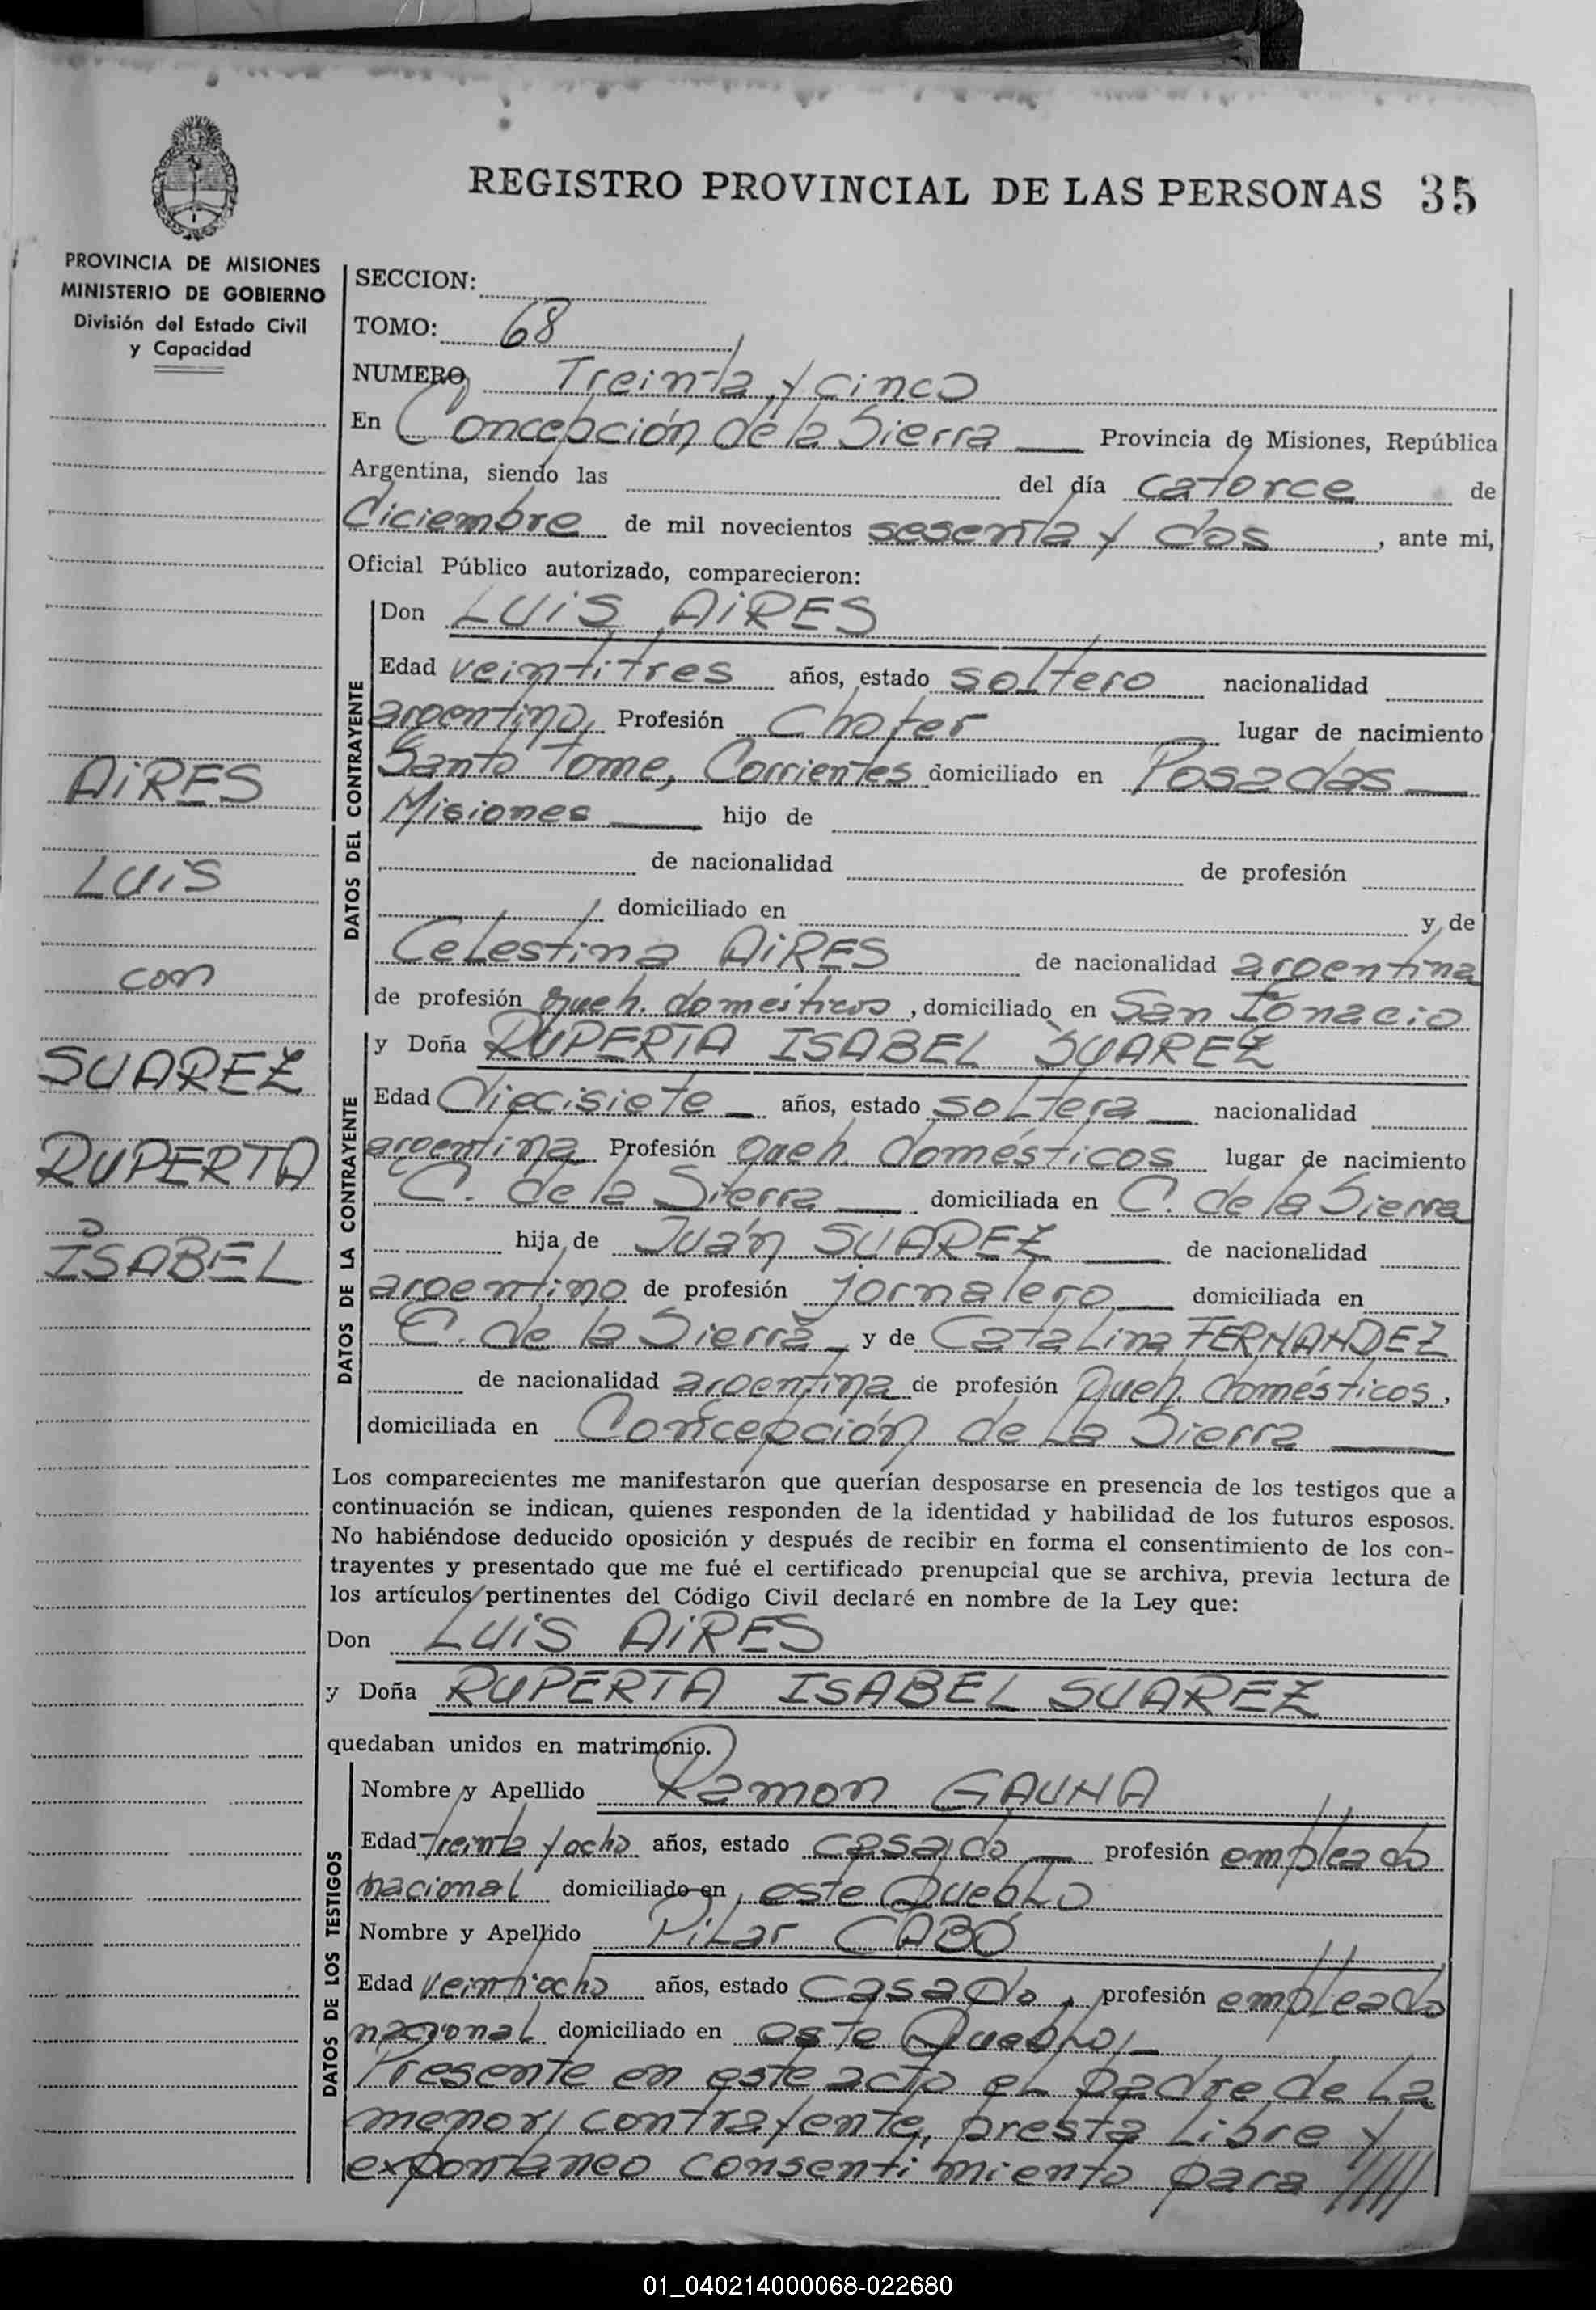 REGISTRO PROVINCIAL DE LAS PERSONAS 35
PROVINCIA DE MISIONES
MINISTERIO DE GOBIERNO
División del Estado Civil
y Capacidad
AIRES
LUIS
con
SUAREZ
RUPERTA
ISABEL
SECCION:
TOMO: 68
NUMERO Treinta y cinco
En Concepción de la Sierra Provincia de Misiones, República
Argentina, siendo las del día catorce de
diciembre de mil novecientos sesenta y dos, ante mi,
Oficial Público autorizado, comparecieron:
DATOS DEL CONTRAYENTE
Don LUIS AIRES
Edad veintitres años, estado soltero nacionalidad
argentino, Profesión Chofer lugar de nacimiento
Santo Tome, Corrientes domiciliado en Posadas
Misiones hijo de
de nacionalidad de profesión
domiciliado en y de
Celestina AIRES de nacionalidad argentina
de profesión queh. domésticos, domiciliado en San Ignacio
DATOS DE LA CONTRAYENTE
y Doña RUPERTA ISABEL SUAREZ
Edad diecisiete años, estado soltera nacionalidad
argentina Profesión queh. domésticos lugar de nacimiento
C. de la Sierra domiciliada en C. de la Sierra
hija de Juán SUAREZ de nacionalidad
argentino de profesión jornalero domiciliada en
C. de la Sierra y de Catalina FERNANDEZ
de nacionalidad argentina de profesión queh. domésticos,
domiciliada en Concepción de la Sierra
Los comparecientes me manifestaron que querían desposarse en presencia de los testigos que a
continuación se indican, quienes responden de la identidad y habilidad de los futuros esposos.
No habiéndose deducido oposición y después de recibir en forma el consentimiento de los con-
trayentes y presentado que me fué el certificado prenupcial que se archiva, previa lectura de
los artículos pertinentes del Código Civil declaré en nombre de la Ley que:
Don LUIS AIRES
y Doña RUPERTA ISABEL SUAREZ
quedaban unidos en matrimonio.
DATOS DE LOS TESTIGOS
Nombre y Apellido Ramon GAUNA
Edad treinta y ocho años, estado casado profesión empleado
nacional domiciliado en este pueblo
Nombre y Apellido Pilar CABÓ
Edad veintiocho años, estado casado, profesión empleado
nacional domiciliado en este pueblo,
Presente en este acto el padre de la
menor contrayente, presta libre y
expontaneo consentimiento para /////
01_040214000068-022680